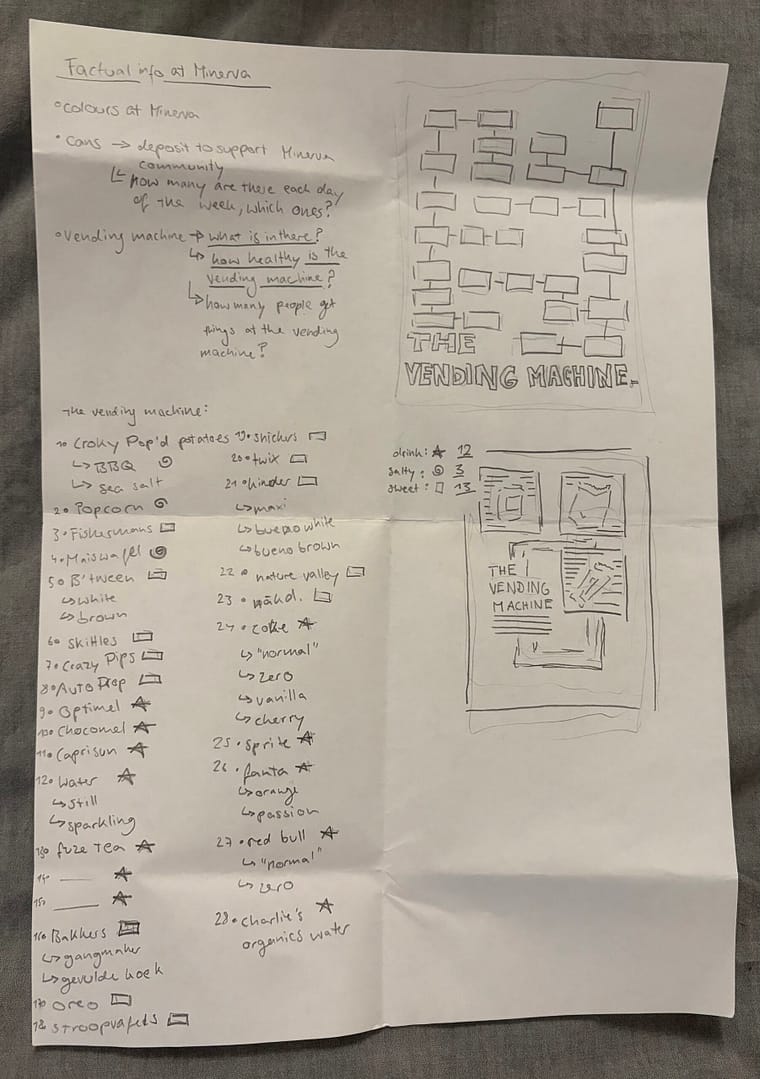 Factual info at Minerva
colours at Minerva
cans → deposit to support Minerva
community
↳ how many are there each day
of the week, which ones?
vending machine → what is in there?
↳ how healthy is the
vending machine?
↳ how many people get
things at the vending
machine?
THE
VENDING MACHINE.
The vending machine:
1. Croky Pop'd potatoes
↳ BBQ
↳ sea salt
2. Popcorn
3. Fishermans
4. Maiswafel
5. B'tween
↳ white
↳ brown
6. skittles
7. Crazy Pips
8. Auto Drop
9. Optimel
10. Chocomel
11. Caprisun
12. Water
↳ still
↳ sparkling
13. fuze tea
14. ____
15. ____
16. Bakkers
↳ gangmaker
↳ gevulde koek
17. oreo
18. stroopwafels
19. snickers
20. twix
21. kinder
↳ maxi
↳ bueno white
↳ bueno brown
22. nature valley
23.
24. coke
↳ "normal"
↳ zero
↳ vanilla
↳ cherry
25. sprite
26. fanta
↳ orange
↳ passion
27. red bull
↳ "normal"
↳ zero
28. charlie's
organics water
drink: 12
salty: 3
sweet: 13
THE
VENDING
MACHINE